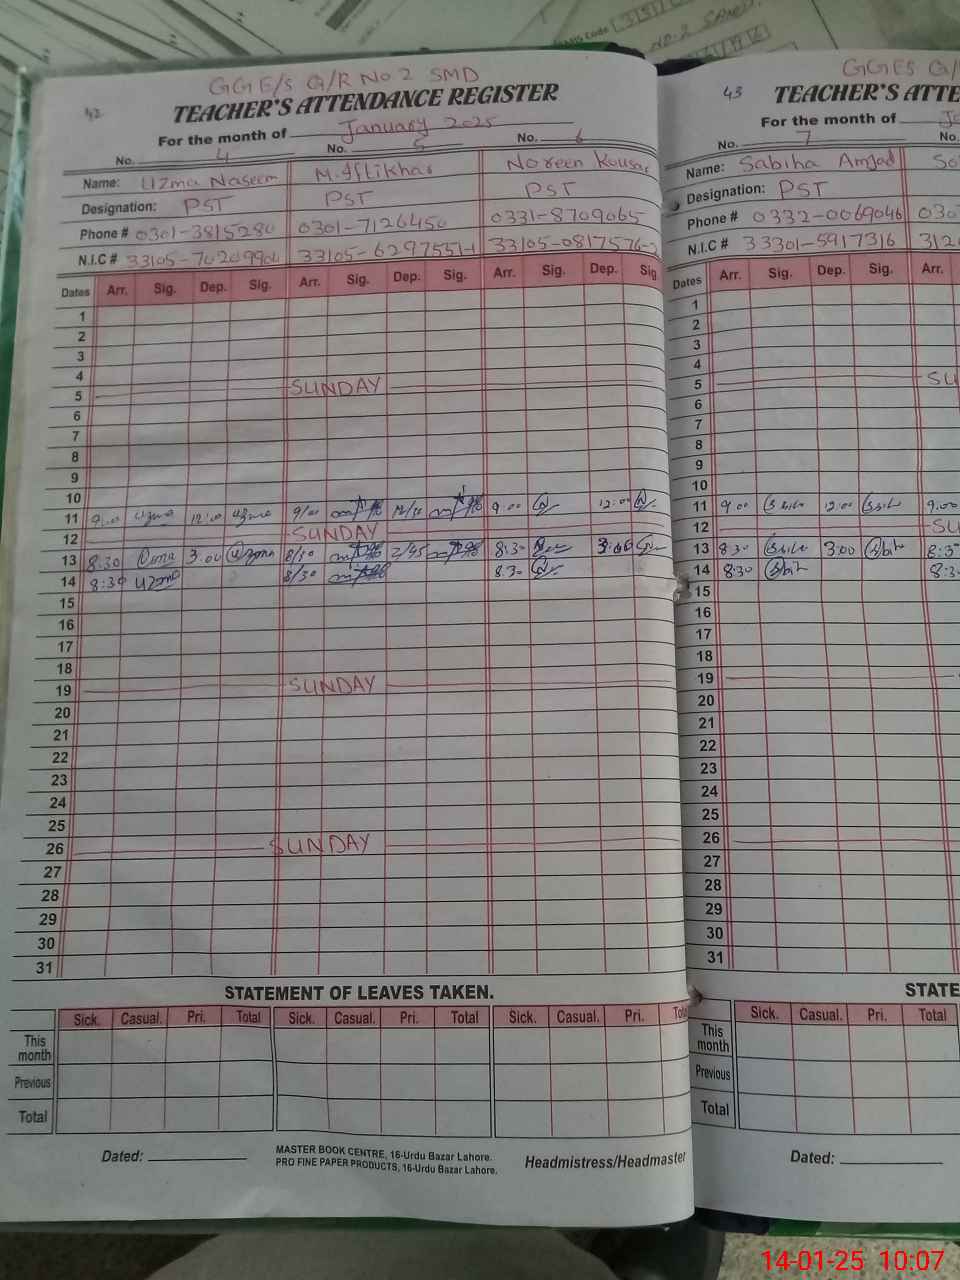 GGE/S G/R No 2 SMD
42
TEACHER'S ATTENDANCE REGISTER
For the month of January 2025
No. 4 No. 5 No. 6
Name: Uzma Naseem M. Iftikhar Noreen Kousar
Designation: PST PST PST
Phone # 0301-3815280 0301-7126450 0331-8709065
N.I.C # 33105-7020990 33105-6297551-1 33105-0817576-2
Dates Arr. Sig. Dep. Sig. Arr. Sig. Dep. Sig. Arr. Sig. Dep. Sig
1
2
3
4
5 SUNDAY
6
7
8
9
10
11 9:00 uzma 12:00 uzma 9/00 12/00 9:00 12:00
12 SUNDAY
13 8:30 uzma 3:00 uzma 8/30 2/45 8:30 3:00
14 8:30 uzma 8/30 8:30
15
16
17
18
19 SUNDAY
20
21
22
23
24
25
26 SUNDAY
27
28
29
30
31
STATEMENT OF LEAVES TAKEN.
Sick. Casual. Pri. Total Sick. Casual. Pri. Total Sick. Casual. Pri. Total
This month
Previous
Total
Dated:
MASTER BOOK CENTRE, 16-Urdu Bazar Lahore.
PRO FINE PAPER PRODUCTS, 16-Urdu Bazar Lahore.
Headmistress/Headmaster
GGES G/
43
TEACHER'S ATTE
For the month of Ja
No. 7 No.
Name: Sabiha Amjad So
Designation: PST
Phone # 0332-0069046 030
N.I.C # 33301-5917316 312
Dates Arr. Sig. Dep. Sig. Arr.
1
2
3
4
5 SU
6
7
8
9
10
11 9:00 12:00 9:00
12 SU
13 8:30 3:00 8:3
14 8:30 8:3
15
16
17
18
19
20
21
22
23
24
25
26
27
28
29
30
31
STATE
Sick. Casual. Pri. Total
This month
Previous
Total
Dated:
14-01-25 10:07